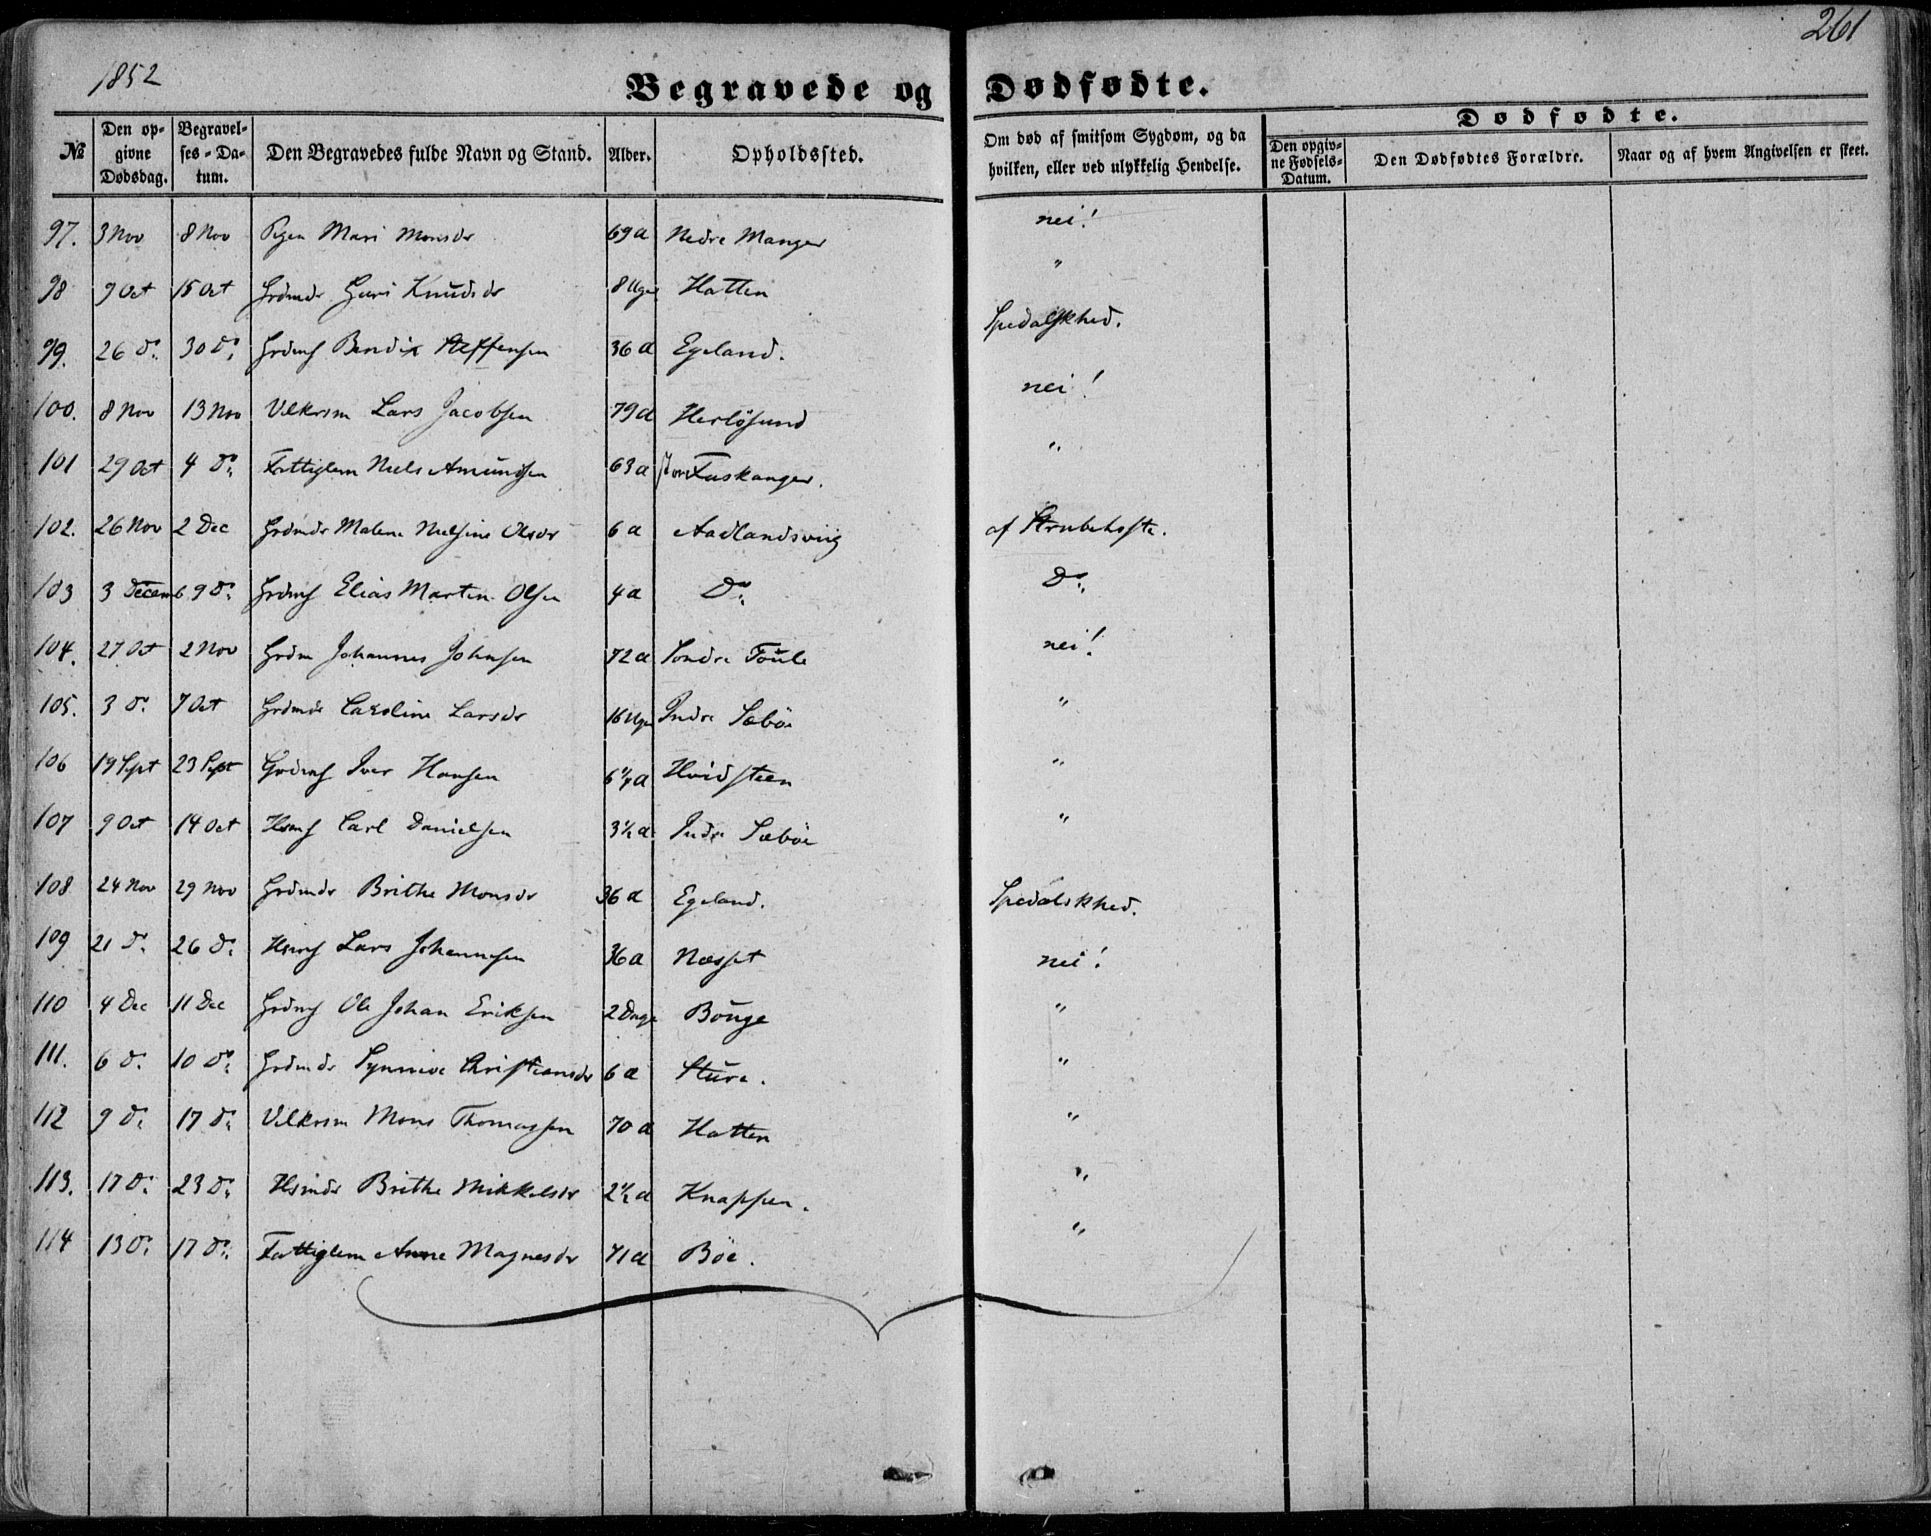 1852
261
Begravede og Dødfødte.
№ | Den opgivne Dødsdag. | Begravelses-Datum. | Den Begravedes fulde Navn og Stand. | Alder. | Opholdssted. | Om død af smitsom Sygdom, og da hvilken, eller ved ulykkelig Hendelse. | Dødfødte. | Den opgivne Fødsels-Datum. | Den Dødfødtes Forældre. | Naar og af hvem Angivelsen er skeet.
97. | 3 Nov | 8 Nov | Pigen Mari Monsdr | 69 a | Nedre Manger | nei!
98 | 9 Oct | 15 Oct | Grdmdr Guri Knudsdr | 8 Uger | Hatten | "
99. | 26 do. | 30 do. | Grdmf Bendix Steffensen | 36 a | Egeland. | Spedalskhed.
100. | 8 Nov | 13 Nov | Vilkrsm Lars Jacobsen | 79 a | Herløsund | nei!
101 | 29 Oct | 4 do. | Fattiglem Niels Amundsen | 63 a | store Fuskanger. | "
102. | 26 Nov | 2 Dec | Grdmdr Malene Nielsine Olsdr | 6 a | Aadlandsviig | af Strubehoste.
103 | 3 Decemb | 9 do. | Grdmf Elias Martin Olsen | 4 a | Do. | Do.
104. | 27 Oct | 2 Nov | Grdm Johannes Johnsen | 72 a | Søndre Toule | nei!
105. | 3 do. | 7 Oct | Grdmdr Caroline Larsdr | 16 Uger | Indre Sæbøe | "
106 | 19 Sept | 23 Sept | Grdmf Iver Hansen | 6 1/4 a | Hvidsteen | "
107 | 9 Oct | 14 Oct | Hsmf Carl Danielsen | 3 1/2 a | Indre Sæbøe | "
108 | 24 Nov | 29 Nov | Grdmdr Brithe Monsdr | 36 a | Egeland. | Spedalskhed.
109 | 21 do. | 26 do. | Hsmf Lars Johannesen | 36 a | Næsset | nei!
110 | 4 Dec | 11 Dec | Grdmf Ole Johan Eriksen | 2 Dage | Bouge | "
111. | 6 do. | 10 do. | Grdmdr Synnive Christiansdr | 6 a | Sture. | "
112 | 9 do. | 17 do. | Vilkrsm Mons Thomassen | 70 a | Hatten | "
113. | 17 do. | 23 do. | Hsmdr Brithe Mikkelsdr | 2 1/2 a | Knappen. | "
114 | 13 do. | 17 do. | Fattiglem Anne Magnesdr | 71 a | Bøe. | "